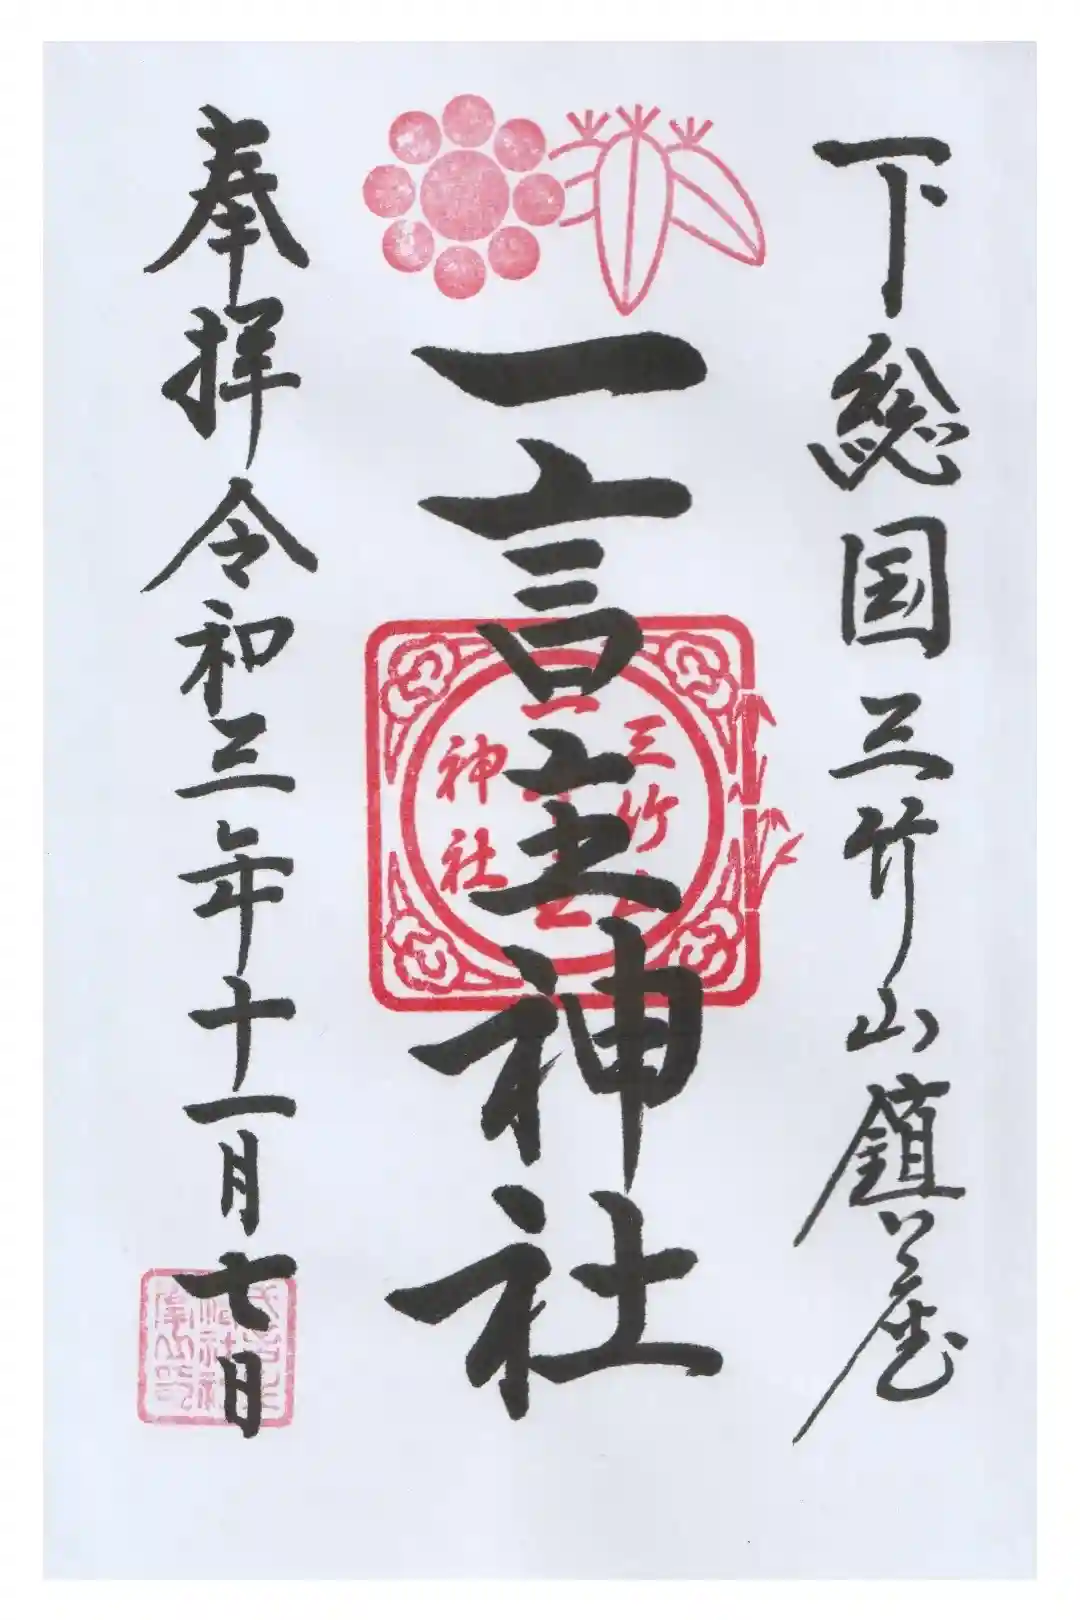 下総国三竹山鎮座
一言主神社
三竹山
神社
奉拝令和三年十一月七日